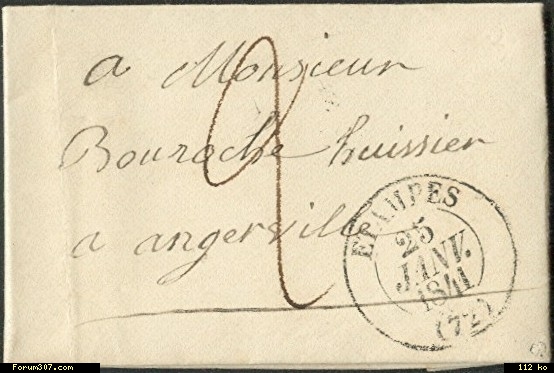 a Monsieur
Bouroche huissier
a angerville
2
ETAMPES
25
JANV.
1841
(72)
Forum307.com
112 ko